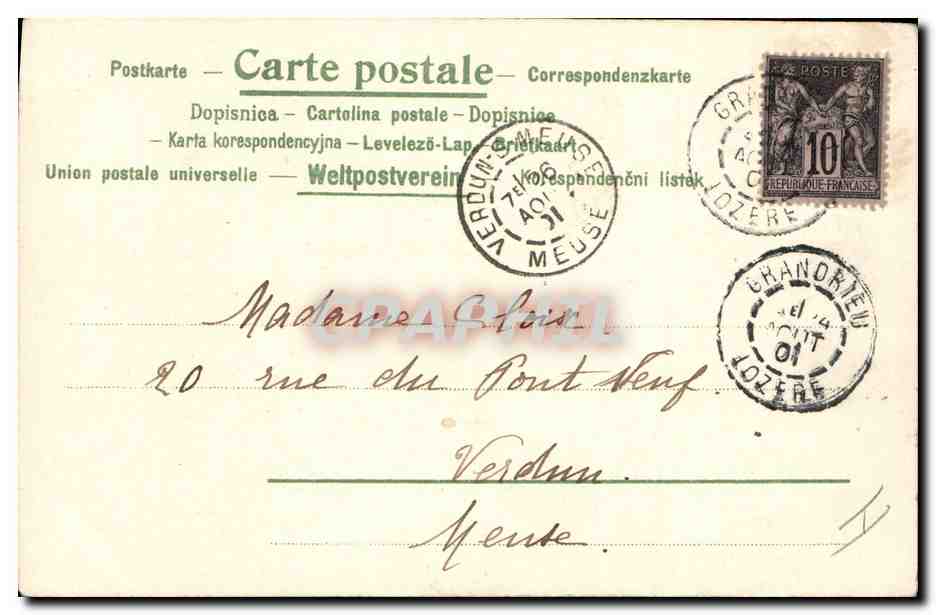 Postkarte — Carte postale — Correspondenzkarte
Dopisnica – Cartolina postale – Dopisnica
– Karta korespondencyjna – Levelező-Lap – Briefkaart
Union postale universelle – Weltpostverein – Korespondenční lístek
POSTE
10
REPUBLIQUE FRANÇAISE
GRAN
AO
LOZERE
VERDUN-S-MEUSE
7E 6
AOU
01
MEUSE
GRANDRIEU
AOUT
01
LOZERE
GRAPHIL
Madame Cloix
20 rue du Pont Neuf
Verdun.
Meuse.